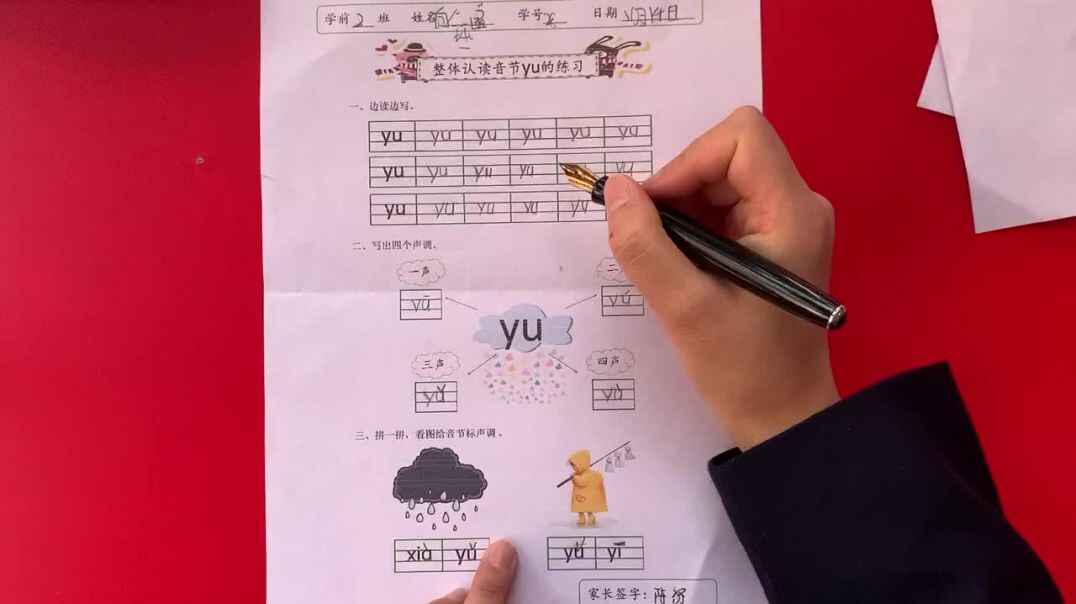 学前 2 班 姓名 学号 日期
整体认读音节yu的练习
一、边读边写。
yu yu yu yu yu yu
yu yu yu yu yu
yu yu yu yu yu
二、写出四个声调。
一声 二
yū yú
yu
三声 四声
yǔ yù
三、拼一拼，看图给音节标声调。
xià yǔ yǔ yī
家长签字：